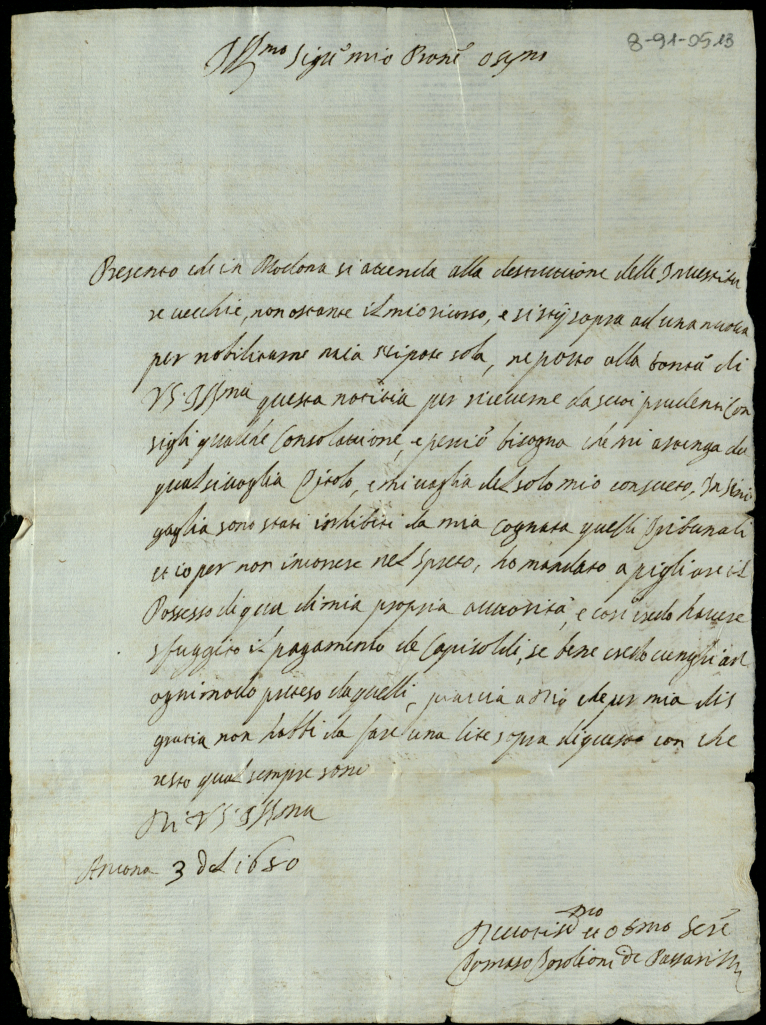 8-91-0513
Ill.mo Sig.re mio Prone osmo
Presento che in Modona si attenda alla destruttione delle Investitu
re vecchie, non ostante il mio ricorso, e si stij sopra ad una nuova
per nobilitarne mia nipote sola, ne porto alla bontà di
VS. Ill.ma questa notitia per riceverne da suoi prudenti Con
sigli qualche Consolatione, e perciò bisogna che mi astenga da
qualsivoglia Titolo, e mi vaglia del solo mio consueto, In Sini
gaglia sono stati inhibiti da mia Cognata quelli Tribunali
et io per non incorrere nel Spreto, ho mandato a pigliare il
Possesso di qua di mia propria auttorità, e così credo havere
sfuggito il pagamento de Capisoldi, se bene credo verrà in
ogni modo preteso da quelli, piaccia a Dio che per mia dis
gratia non habbi da fare una lite sopra di questo con che
resto qual sempre sono
Di VS. Ill.ma
Ancona 3 del 1680
Devotis.mo et Obmo Ser.re
Tomaso de Passari